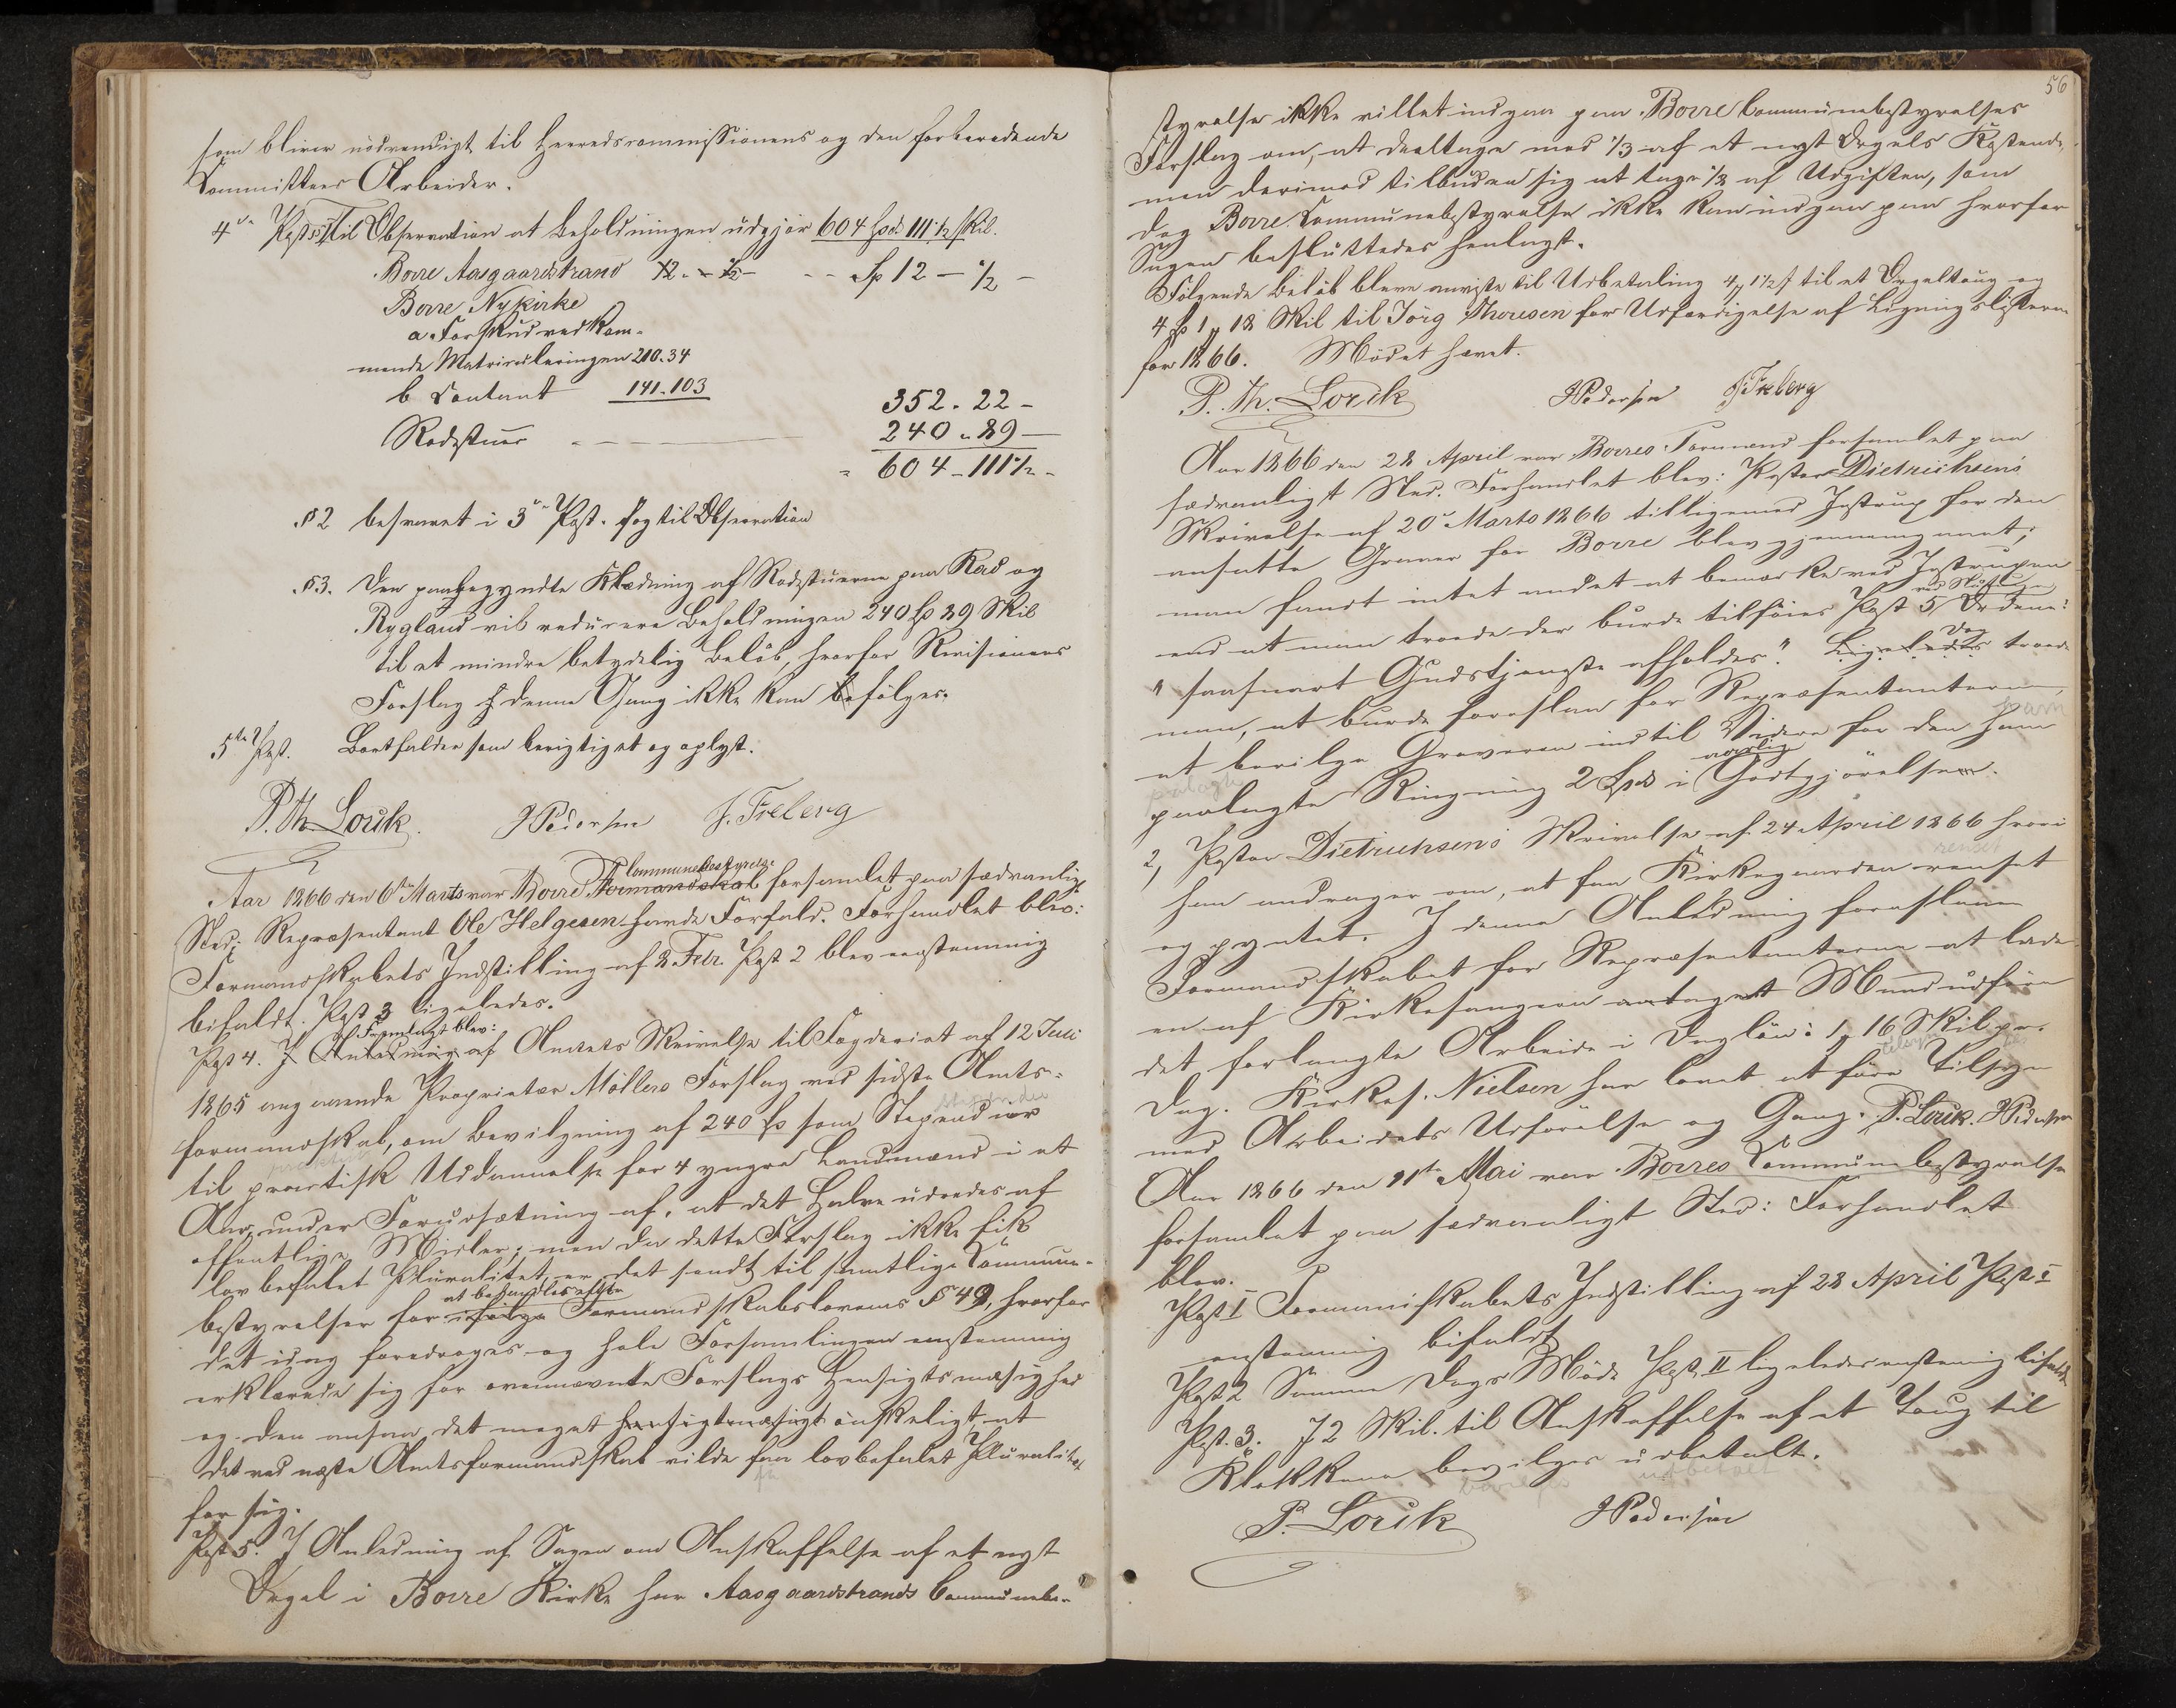 som bliver nödvendigt til Herredscommissionens og den forberedende
Committees Arbeider.
4de Post § 1 Til Observation at Beholdningen udgjør 604 Spd. 111 1/2 Skil.
Borre Aasgaardstrand 12 - 1/2 - - - Sp 12 - 1/2 -
Borre Nykirke
a Forskud vedkom-
mende Matriculeringen 210. 34
b Contant 141. 103
352. 22 -
Rodestuer - 240 " 89 -
604 - 111 1/2 -
§ 2 besvaret i 3de Post. Og til Observation
§ 3. Den paabegyndte Klædning af Rodestuerne paa Rød og
Rygland vil reducere Beholdningen 240 Sp 89 Skil
til et mindre betydelig Beløb, hvorfor Revisionens
Forslag denne Gang ikke kan følges.
5te Post. Bortfalder som berigtiget og oplyst.
P. Th. Lorck. J Pedersen J. Freberg
Aar 1866 den 6te Marts var Borre Formandskab Communebestyrelse forsamlet paa sædvanligt
Sted; Repræsentant Ole Helgesen havde Forfald. Forhandlet blev:
Formandskabets Indstilling af 8 Febr. Post 2 blev eenstemmig
bifaldt. Post 3 ligeledes.
Fremlagt blev:
Post 4. I Anledning af Amtets Skrivelse til Fogderiet af 12 Juni
1865 angaaende Proprietær Möllers Forslag ved sidste Amts-
formandskab, om Bevilgning af 240 Sp som Stipendier
til practisk Uddannelse for 4 yngre Landmænd i et
Aar, under Forudsætning af, at det Halve udredes af
offentlige Midler; men da dette Forslag ikke fik
lovbefalet Pluralitet, er det sendt til samtlige Commune-
bestyrelser for ifølge at behandles efter Formandskabslovens § 49, hvorfor
det idag foredroges og hele Forsamlingen eenstemmig
erklærede sig for ovennævnte Forslags Hensigtsmæsighed
og den ansaa det meget hensigtmæsigt ønskeligt at
det ved næste Amtsformandskab vilde faa lovbefalet Pluralitet
for sig.
Post 5. I Anledning af Sagen om Anskaffelse af et nyt
Orgel i Borre Kirke har Aasgaardstrands Communebe-
56
styrelse ikke villet indgaa paa Borre Communebestyrelses
Forslag om, at deeltage med 1/3 af et nyt Orgels Kostende,
men derimod tilbuden sig at tage 1/8 af Udgiften, som
dog Borre Communebestyrelse ikke kan indgaa paa hvorfor
Sagen besluttedes henlagt.
Følgende Beløb bleve anviste til Udbetaling 4 11 1/2 s til et Orgeltoug og
4 Sp 1 18 Skil til Jörg Thoresen for Udfærdigelse af Ligningslisterne
for 1866. Mödet hævet.
P. Th. Lorck J Pedersen J. Freberg
Aar 1866 den 28 April var Borres Formænd forsamlet paa
sædvanligt Sted. Forhandlet blev: Pastor Dietrichsens
Skrivelse af 20de Marts 1866 tilligemed Instrux for den
ansatte Graver for Borre blev gjennemgaaet;
man fandt intet andet at bemærke ved Instruxen
end at man troede der burde tilføies Post 5 ved Slutningen Ordene:
"saasnart Gudstjeneste afholdes". Ligeledes Dog troede
man, at burde foreslaa for Repræsentanterne,
at bevilge Graveren indtil Videre for den ham
paalagte Ringning 2 Spd i aarlig Godtgjörelse.
2, Pastor Dietrichsens Skrivelse af 24 April 1866 hvori
han andrager om, at faa Kirkegaarden renset
og pyntet. I denne Anledning foreslaaer
Formandskabet for Repræsentanterne at lade
en af Kirkesangeren antaget Mand udføre
det forlangte Arbeide i Daglön: 1 16 Skil pr.
Dag. Kirkes. Nielsen har lovet at føre Tilsyn
med Arbeidets Udførelse og Gang. P. Lorck. J Pedersen
Aar 1866 den 11te Mai var Borres Communebestyrelse
forsamlet paa sædvanligt Sted: Forhandlet
blev.
Post I Formandskabets Indstilling af 28 April Post I
enstemmig bifaldt
Post 2 Samme Dags Möde Post II ligeledes enstemig bifaldt
Post. 3. 72 Skil. til Anskaffelse af et Toug til
Klokkene bevilges udbetalt.
P. Lorck J Pedersen